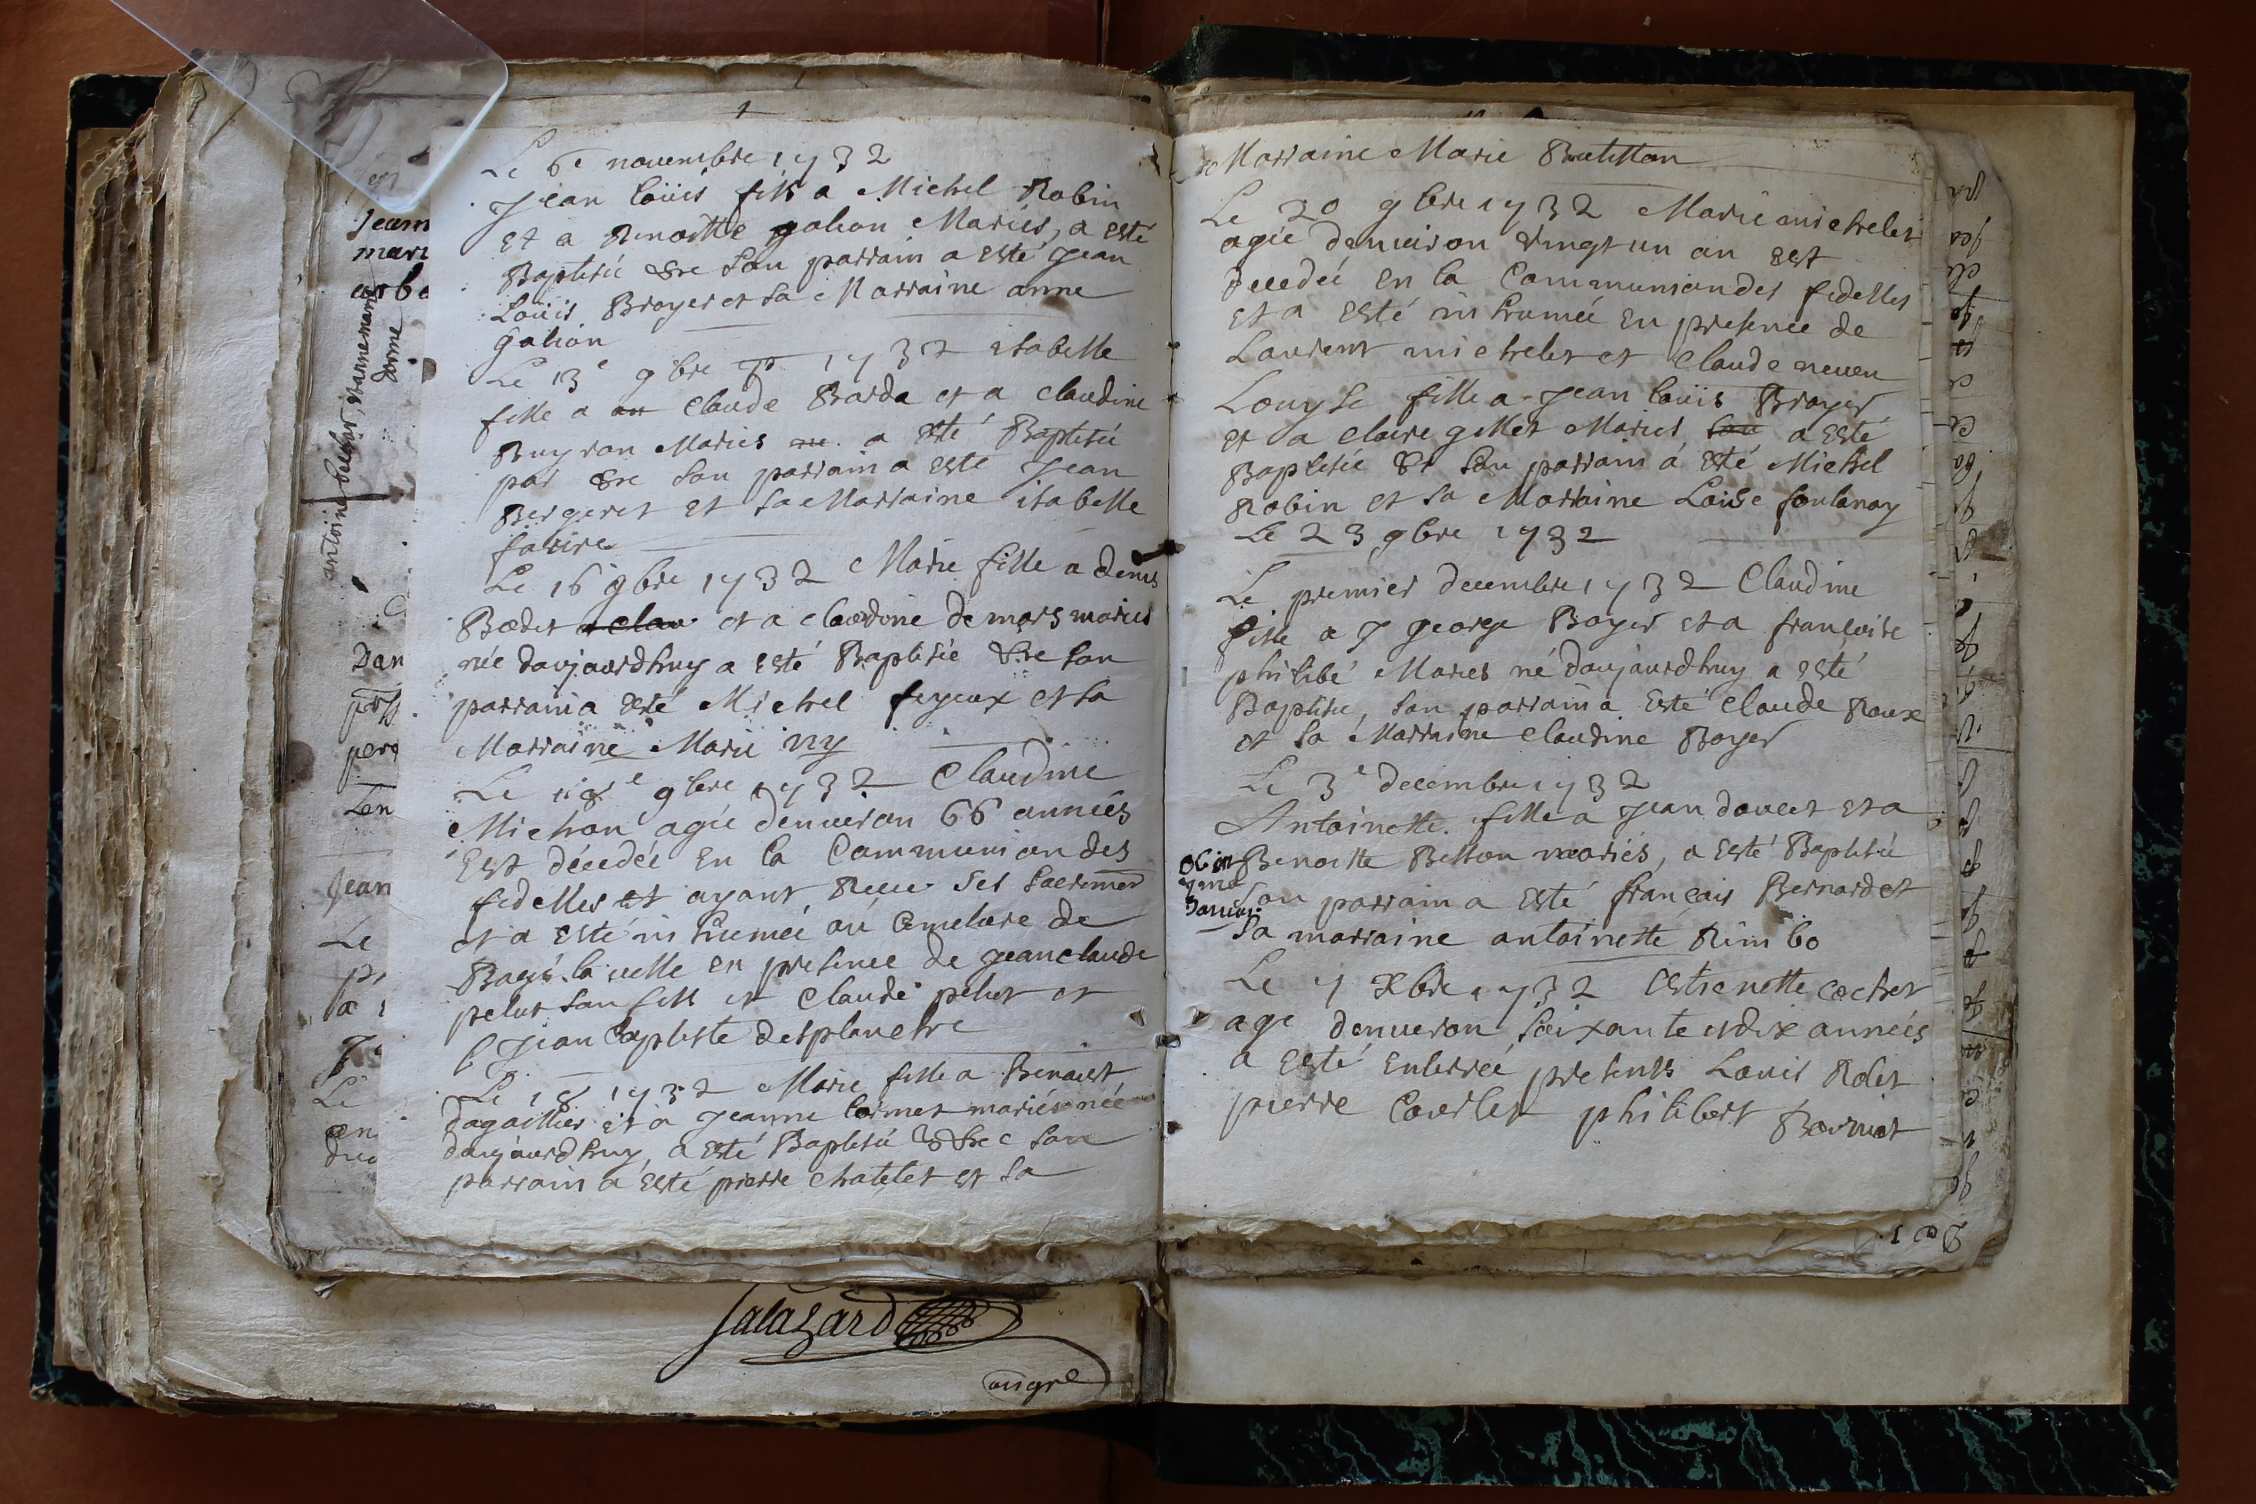 Le 6e nouembre 1732
Jean loüis fils a Michel Robin
Et a Benoitte galion Mariés, a esté
Baptisée &c son parrain a esté Jean
Louis Broyer et sa Marraine anne
galion
Le 13e 9bre 1732 isabelle
fille a claude Barda et a claudine
Buyron Mariés a esté Baptisée
par &c son parrain a esté Jean
Bergeret et sa Marraine isabelle
faure
Le 16 9bre 1732 Marie fille a denis
Bodet a clau et a claudine de mars mariés
née daujourdhuy a esté Baptisée &c son
parrain a esté Michel feyeux et sa
Marraine Marie ny
Le 18e 9bre 1732 Claudine
Michon agée denuiron 66 années
Est décedée En la Communion des
fidelles et ayant Receu ses sacremen
et a esté inhumée au Cemetiere de
Bagé la uille en presence de Jeanclaude
pelus son fils et Claude pelus et
Jean Baptiste desplanche
Le 18 1732 Marie fille a Benoist
dagallier et a Jeanne mariés née
daujourdhuy, a esté Baptisée &c son
parrain a esté pierre chatelet et sa
Marraine Marie
Le 20 9bre 1732 Marie michelet
agée denuiron vingt un an est
decedée en la Communion des fidelles
et a esté inhumée en presence de
Laurent michelet et Claude neueu
Louyse fille a Jean loüis Broyer
et a claire gillet Mariés son a esté
Baptisée &c son parrain a esté Michel
Robin et sa Marraine Loise fontenay
Le 23 9bre 1732
Le premier decembre 1732 Claudine
fille a J george Boyer et a francoise
philibé Mariés né daujourdhuy a esté
Baptisée, son parrain a esté claude Roux
et sa Marraine claudine Boyer
Le 3e decembre 1732
Antoinette fille a Jean doucet et a
Benoitte Bellon mariés, a esté Baptisée
son parrain a esté françois Bernardet
sa marraine antoinette Rimbo
Le 7 Xbre 1732 Estienette cochet
age denuiron soixante et dix années
a esté enterrée presents Louis Rolet
pierre Courlet philibert Bournet
Jean
Dan
Jean
Le
Le
salazard